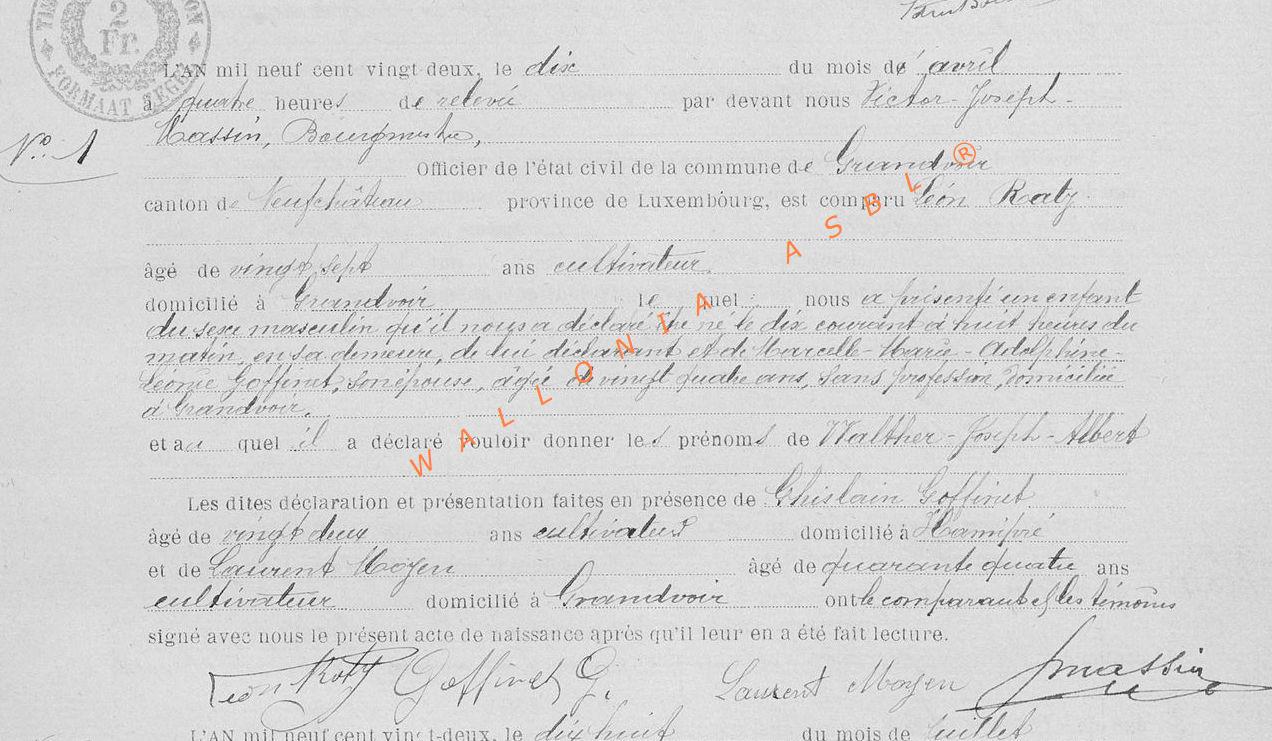 2
Fr.
FORMAAT ZEGEL
L'AN mil neuf cent vingt-deux, le dix du mois de avril
à quatre heures de relevée par devant nous Victor-Joseph-
Massin, Bourgmestre,
No 1
Officier de l'état civil de la commune de Grandvoir
canton de Neufchâteau province de Luxembourg, est comparu Léon Raty
âgé de vingt sept ans cultivateur
domicilié à Grandvoir lequel nous a présenté un enfant
du sexe masculin qu'il nous a déclaré être né le dix courant à huit heures du
matin, en sa demeure, de lui déclarant et de Marcelle-Marie-Adolphine-
Léonie Goffinet, son épouse, âgée de vingt quatre ans, sans profession, domiciliée
à Grandvoir.
et au quel il a déclaré vouloir donner les prénoms de Walther-Joseph-Albert
Les dites déclaration et présentation faites en présence de Ghislain Goffinet
âgé de vingt deux ans cultivateur domicilié à Hamipré
et de Laurent Moyen âgé de quarante quatre ans
cultivateur domicilié à Grandvoir ont le comparant et les témoins
signé avec nous le présent acte de naissance après qu'il leur en a été fait lecture.
Léon Raty Goffinet G. Laurent Moyen Massin
L'AN mil neuf cent vingt-deux, le dix huit du mois de Juillet
WALLONIA ASBL ®